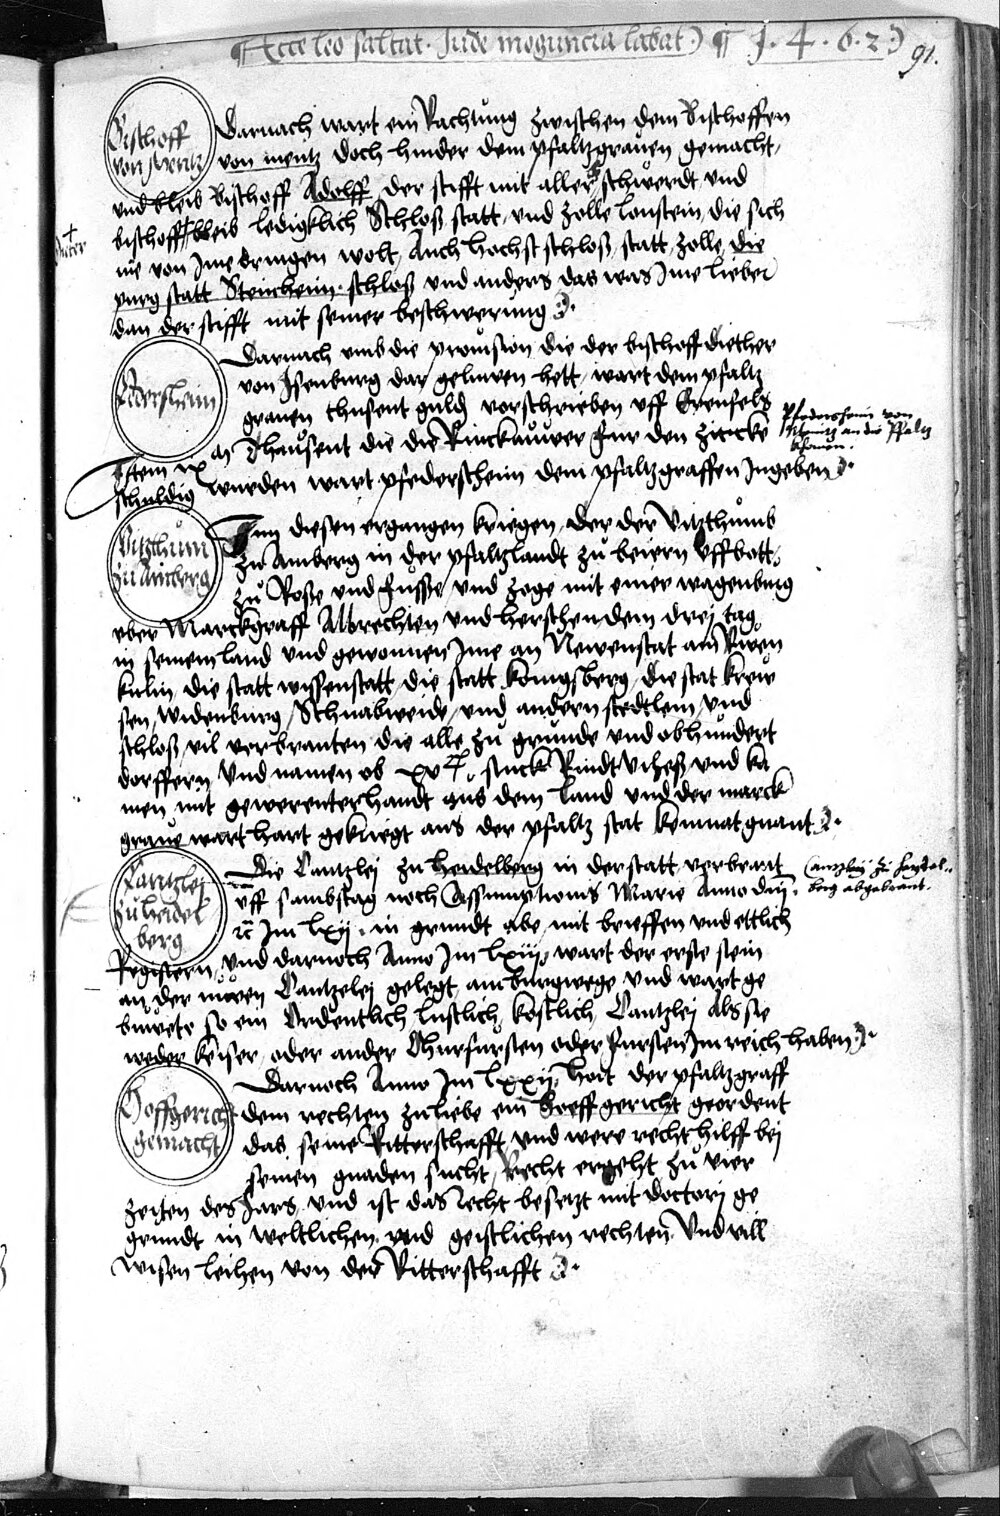 ¶ Ecce leo saltat. Inde moguncia labat.) ¶ 1.4.6.2.)
91.
Bischoff
von Mentz
Darnach wart ein Rachtung zwischen dem Bischoffen
von mentz doch hinder dem pfaltzgrauen gemacht,
und bleib Bischoff Adolff der stifft mit aller schwerdt und
bischoff bleib ledigklich Schloß statt, und zolle lonstein, die sich
nie von Ime dringen wolt, Auch hochst schloß, statt, zolle, die
purg statt Steinheim. schloß und anders das was Ime lieber
dan der stifft mit seiner beschwerung.
Pfedersheim
Darnach umb die provision die der bischoff diether
von Isenburg dar gelauwen hett, wart dem pfaltz
grauen thusent guld vorschrieben uff Erenfels
Item Thausent die die Rinckauwer fur den
schuldig wurden wart pfederscheim dem pfaltzgraffen Ingeben.
Pfedersheim von
Mentz an die Pfaltz
Vitzthum
zu Amberg
Inn diesen ergangen kriegen, der der Vitzthumb
zu Amberg in der pfaltzlandt zu beiern uffbott,
zu Rosse und fusse, und zoge mit einer wagenburg
uber Marckgraff Albrechten und herschen dem drei tag
in seinem land und gewonnen Ime an Newenstat am
kulm, die statt wissenstatt, die statt Konigsberg, die stat Krew
sen, widenburg, Schnabweide, und andern stedtlein, und
schloß, vil verbranten die alle zu grunde und ob hundert
dorffern, Und namen ob stuck Rindt vihess und ka
men mit gewerenter handt aus dem land und der marck
graue wart hart gekriegt aus der pfaltz stat kemnat gnant.
Cantzlei
zu heidel
berg
Die Cantzlei zu Heidelberg in der statt verbrant
uff sambstag noch Assumptionis Marie Anno dni.
Im lxij. in grundt abe, mit brieffen und ettlich
Registern, und darnoch Anno Im lxiij, wart der erste stein
an der nuwen Cantzelej gelegt, am burgwege und wart ge
buwete so ein Ordentlich lustlich, kostlich, Cantzlej Als sie
weder keiser, oder ander Churfursten oder fursten Im reich haben.
Cantzlei zu Heydel..
berg abgebrant.
Hoffgericht
gemacht
Darnoch Anno Im lxxij, hait der pfaltzgraff
dem rechten zu liebe ein hoeff gericht geordent
das seine Ritterschafft, und were recht hilff bei
seinen gnaden sucht, Recht ergeht zu vier
zeiten des Jars und ist das recht besetzt mit doctorj ge
grundt in weltlichen und geistlichen rechten Und vill
wisen leihen von der Ritterschafft.